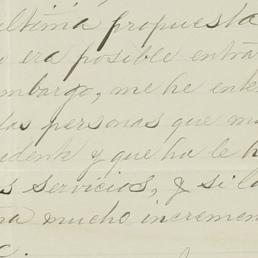 ultima propuesta
o era posible entra
mbargo, me he ente
las personas que m
idente y que ha le h
s servicios, y si lo
na mucho incremen